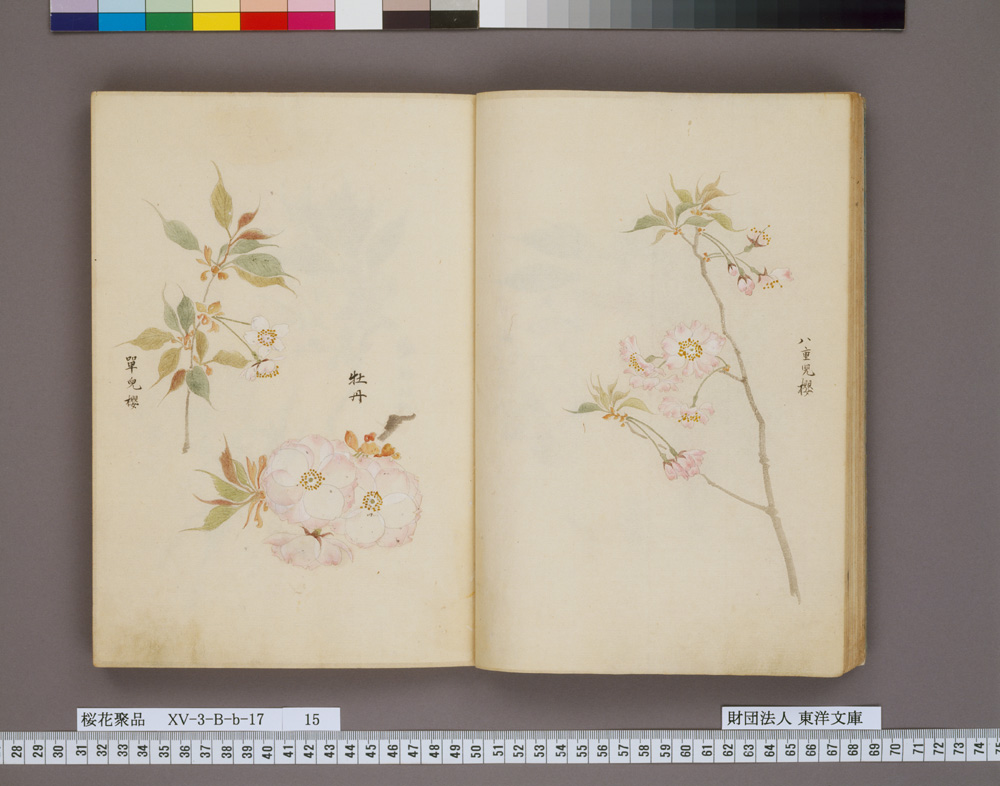 八重児櫻
牡丹
單児櫻
桜花聚品 XV-3-B-b-17 15
財団法人 東洋文庫
28 29 30 31 32 33 34 35 36 37 38 39 40 41 42 43 44 45 46 47 48 49 50 51 52 53 54 55 56 57 58 59 60 61 62 63 64 65 66 67 68 69 70 71 72 73 74 75